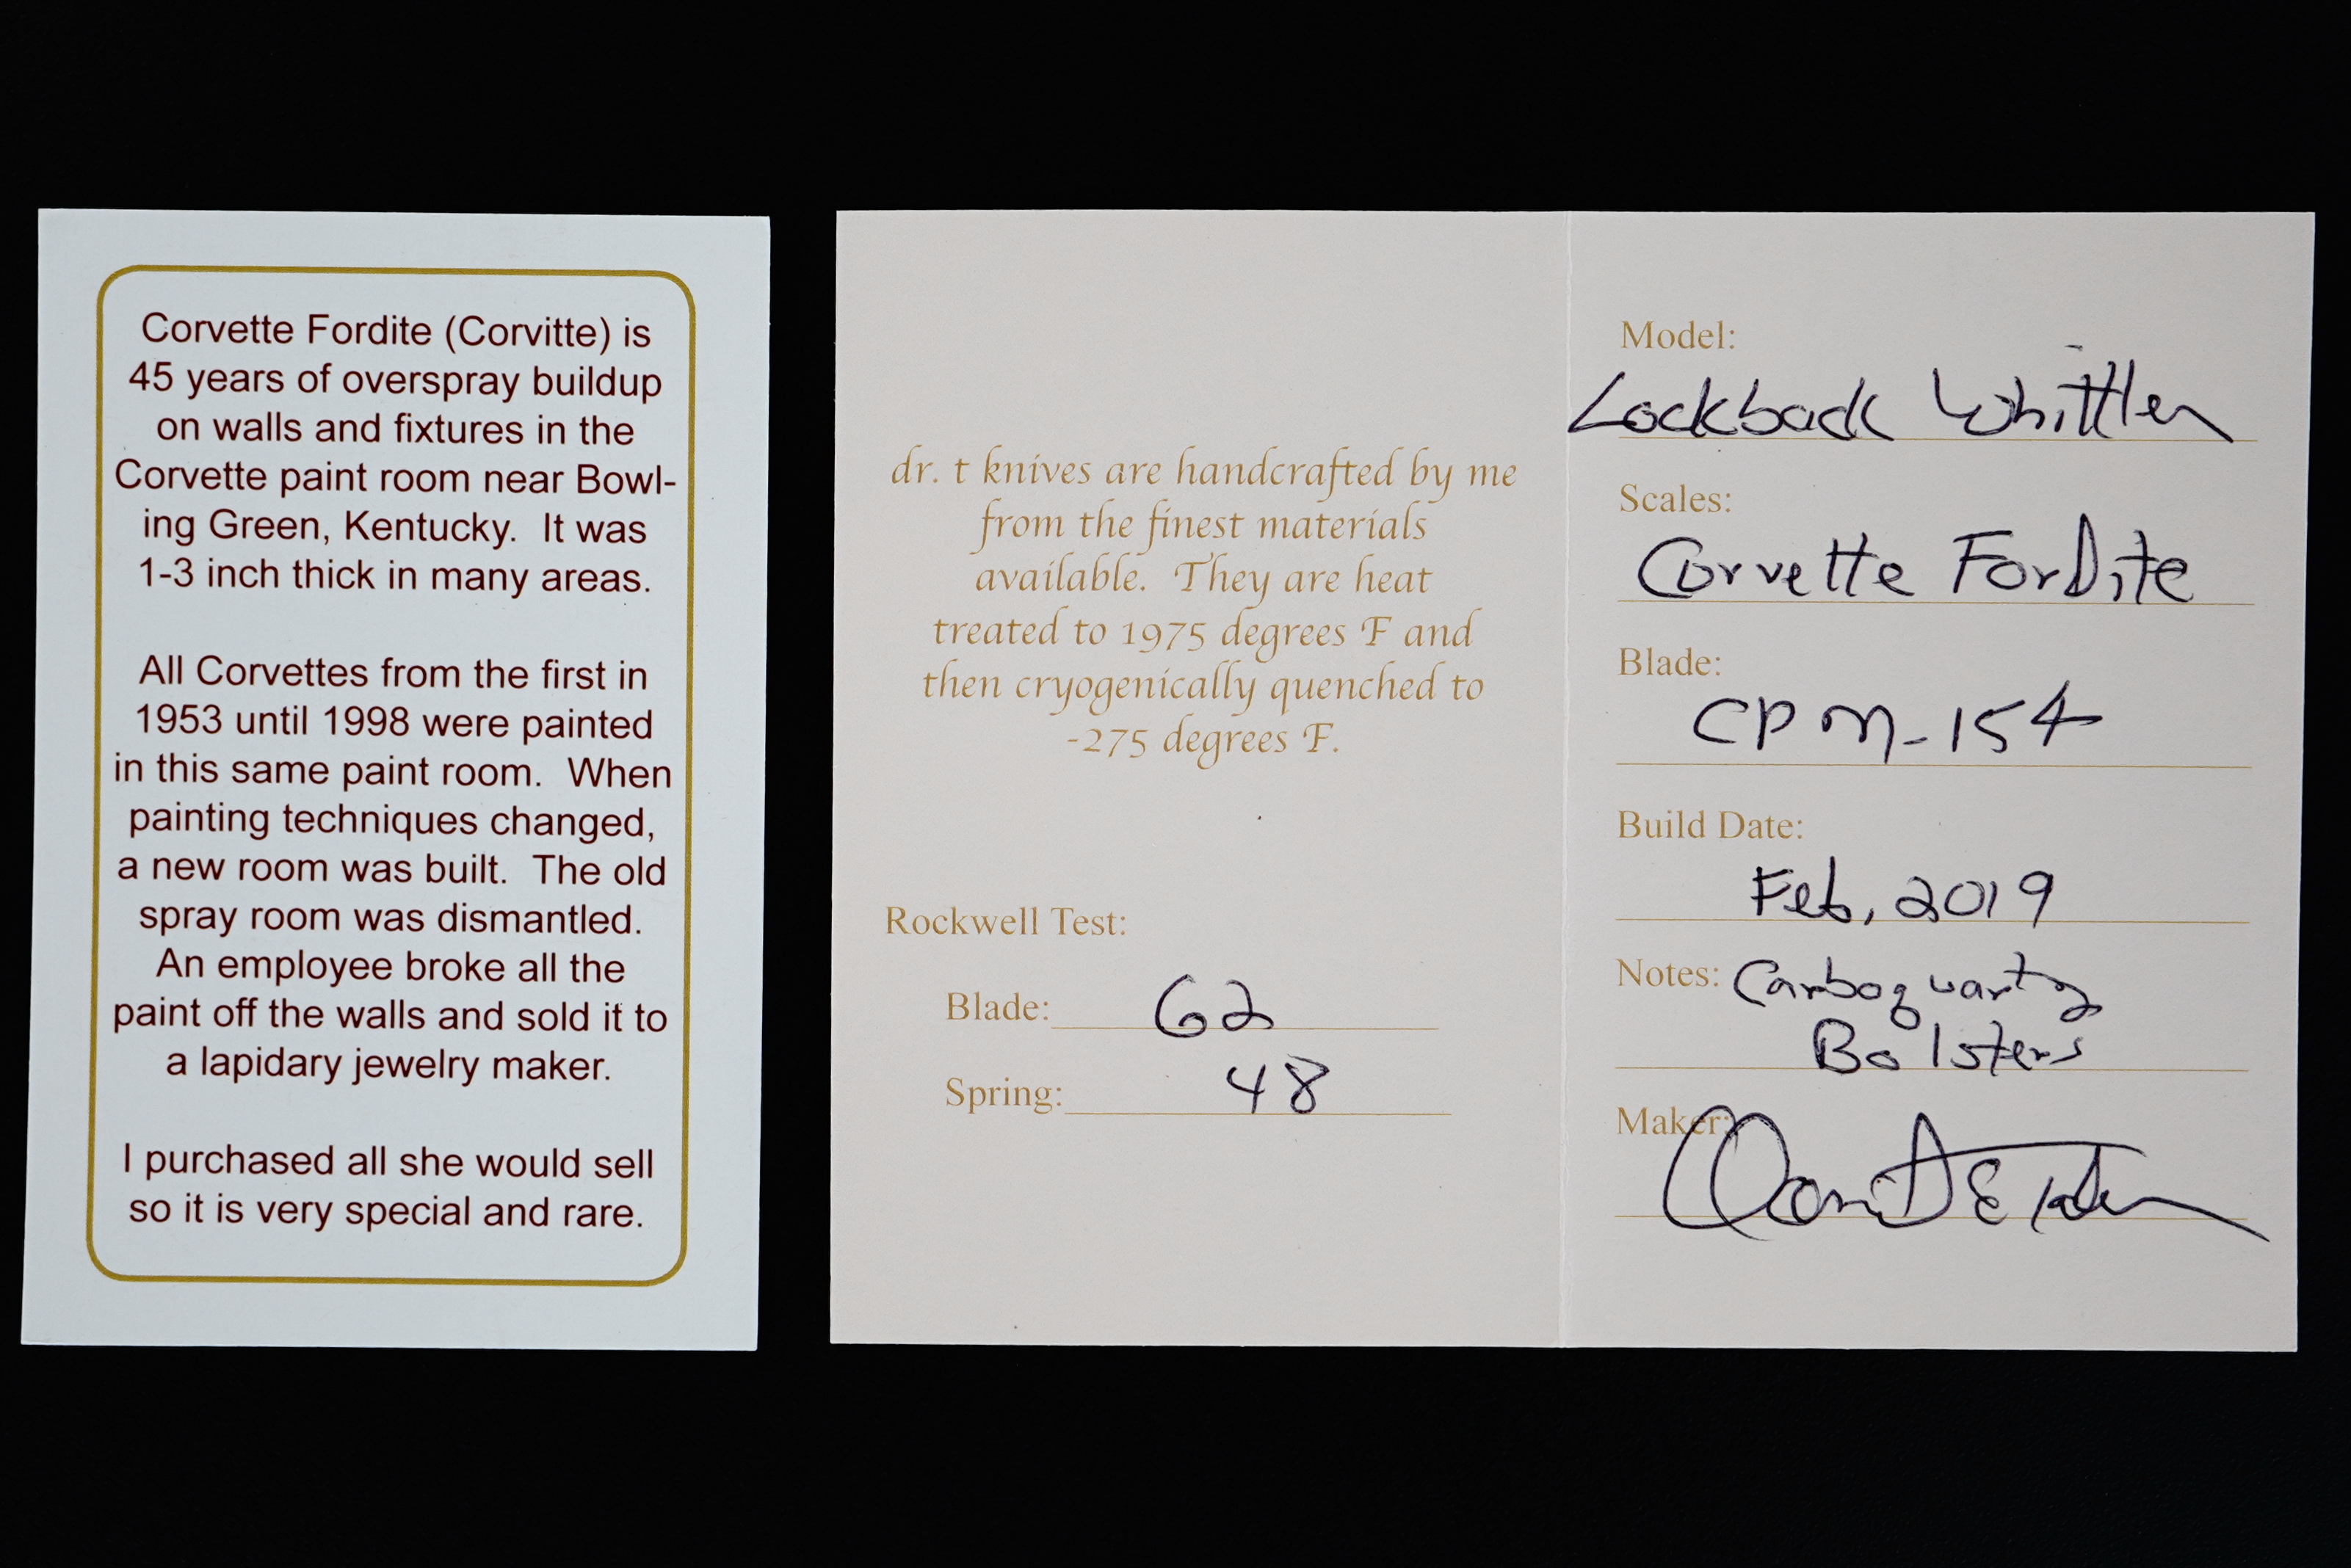 Corvette Fordite (Corvitte) is
45 years of overspray buildup
on walls and fixtures in the
Corvette paint room near Bowl-
ing Green, Kentucky.  It was
1-3 inch thick in many areas.
All Corvettes from the first in
1953 until 1998 were painted
in this same paint room.  When
painting techniques changed,
a new room was built.  The old
spray room was dismantled.
An employee broke all the
paint off the walls and sold it to
a lapidary jewelry maker.
I purchased all she would sell
so it is very special and rare.
dr. t knives are handcrafted by me
from the finest materials
available.  They are heat
treated to 1975 degrees F and
then cryogenically quenched to
-275 degrees F.
Rockwell Test:
Blade: 62
Spring: 48
Model:
Lockback Whittler
Scales:
Corvette Fordite
Blade:
CPM-154
Build Date:
Feb, 2019
Notes: Carboquartz
Bolsters
Maker: